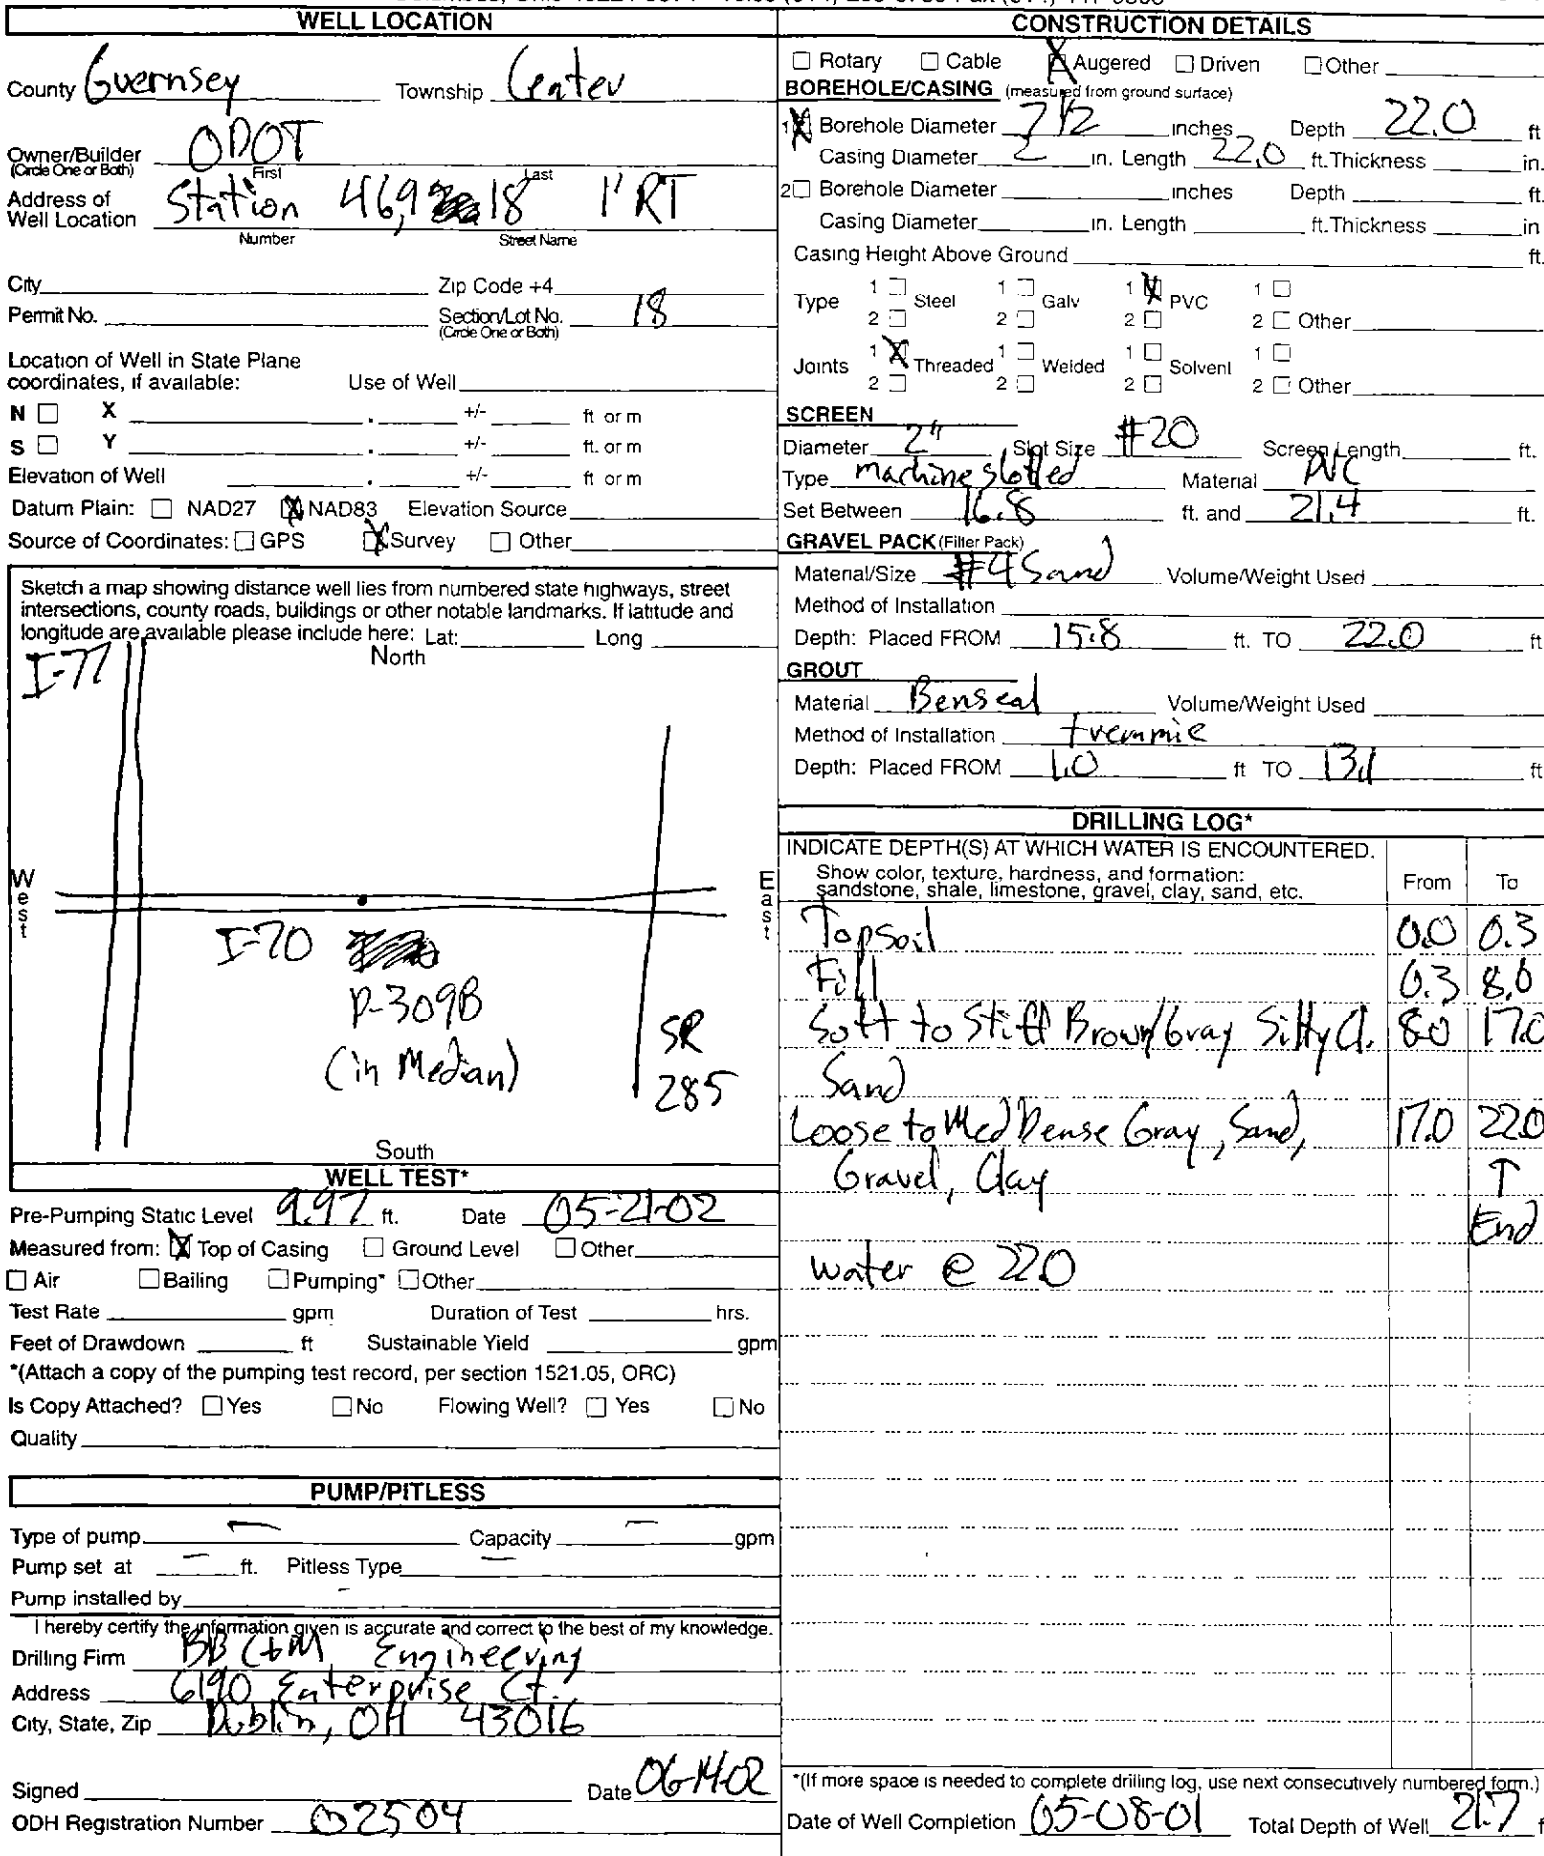 WELL LOCATION
County Guernsey Township Center
Owner/Builder ODOT
(Circle One or Both) First Last
Address of
Well Location Station 469, 18 1' RT
Number Street Name
City Zip Code +4
Permit No. Section/Lot No. 18
(Circle One or Both)
Location of Well in State Plane
coordinates, if available: Use of Well
N ☐ X . +/- ft or m
S ☐ Y . +/- ft. or m
Elevation of Well . +/- ft or m
Datum Plain: ☐ NAD27 ☒ NAD83 Elevation Source
Source of Coordinates: ☐ GPS ☒ Survey ☐ Other
Sketch a map showing distance well lies from numbered state highways, street
intersections, county roads, buildings or other notable landmarks. If latitude and
longitude are available please include here: Lat: Long
North
I-77
West
East
I-70
P-309B
(in Median)
SR
285
South
WELL TEST*
Pre-Pumping Static Level 9.97 ft. Date 05-21-02
Measured from: ☒ Top of Casing ☐ Ground Level ☐ Other
☐ Air ☐ Bailing ☐ Pumping* ☐ Other
Test Rate gpm Duration of Test hrs.
Feet of Drawdown ft Sustainable Yield gpm
*(Attach a copy of the pumping test record, per section 1521.05, ORC)
Is Copy Attached? ☐ Yes ☐ No Flowing Well? ☐ Yes ☐ No
Quality
PUMP/PITLESS
Type of pump — Capacity — gpm
Pump set at — ft. Pitless Type —
Pump installed by -
I hereby certify the information given is accurate and correct to the best of my knowledge.
Drilling Firm BBC+M Engineering
Address 6190 Enterprise Ct.
City, State, Zip Dublin, OH 43016
Signed Date 06-14-02
ODH Registration Number 02504
CONSTRUCTION DETAILS
☐ Rotary ☐ Cable ☒ Augered ☐ Driven ☐ Other
BOREHOLE/CASING (measured from ground surface)
1 ☒ Borehole Diameter 7 1/2 inches Depth 22.0 ft
Casing Diameter 2 in. Length 22.0 ft. Thickness in.
2 ☐ Borehole Diameter inches Depth ft.
Casing Diameter in. Length ft. Thickness in
Casing Height Above Ground ft.
Type 1 ☐ Steel 1 ☐ Galv 1 ☒ PVC 1 ☐
2 ☐ 2 ☐ 2 ☐ 2 ☐ Other
Joints 1 ☒ Threaded 1 ☐ Welded 1 ☐ Solvent 1 ☐
2 ☐ 2 ☐ 2 ☐ 2 ☐ Other
SCREEN
Diameter 2" Slot Size #20 Screen Length ft.
Type machine slotted Material PVC
Set Between 16.8 ft. and 21.4 ft.
GRAVEL PACK (Filter Pack)
Material/Size #4 Sand Volume/Weight Used
Method of Installation
Depth: Placed FROM 15.8 ft. TO 22.0 ft
GROUT
Material Benseal Volume/Weight Used
Method of Installation tremmie
Depth: Placed FROM 1.0 ft TO 13.1 ft
DRILLING LOG*
INDICATE DEPTH(S) AT WHICH WATER IS ENCOUNTERED.
Show color, texture, hardness, and formation:
sandstone, shale, limestone, gravel, clay, sand, etc. From To
Topsoil 0.0 0.3
Fill 0.3 8.0
Soft to Stiff Brown/Gray Silty Cl. 8.0 17.0
Sand
Loose to Med Dense Gray, Sand, 17.0 22.0
Gravel, Clay ↑
End
water @ 22.0
*(If more space is needed to complete drilling log, use next consecutively numbered form.)
Date of Well Completion 05-08-01 Total Depth of Well 21.7 f